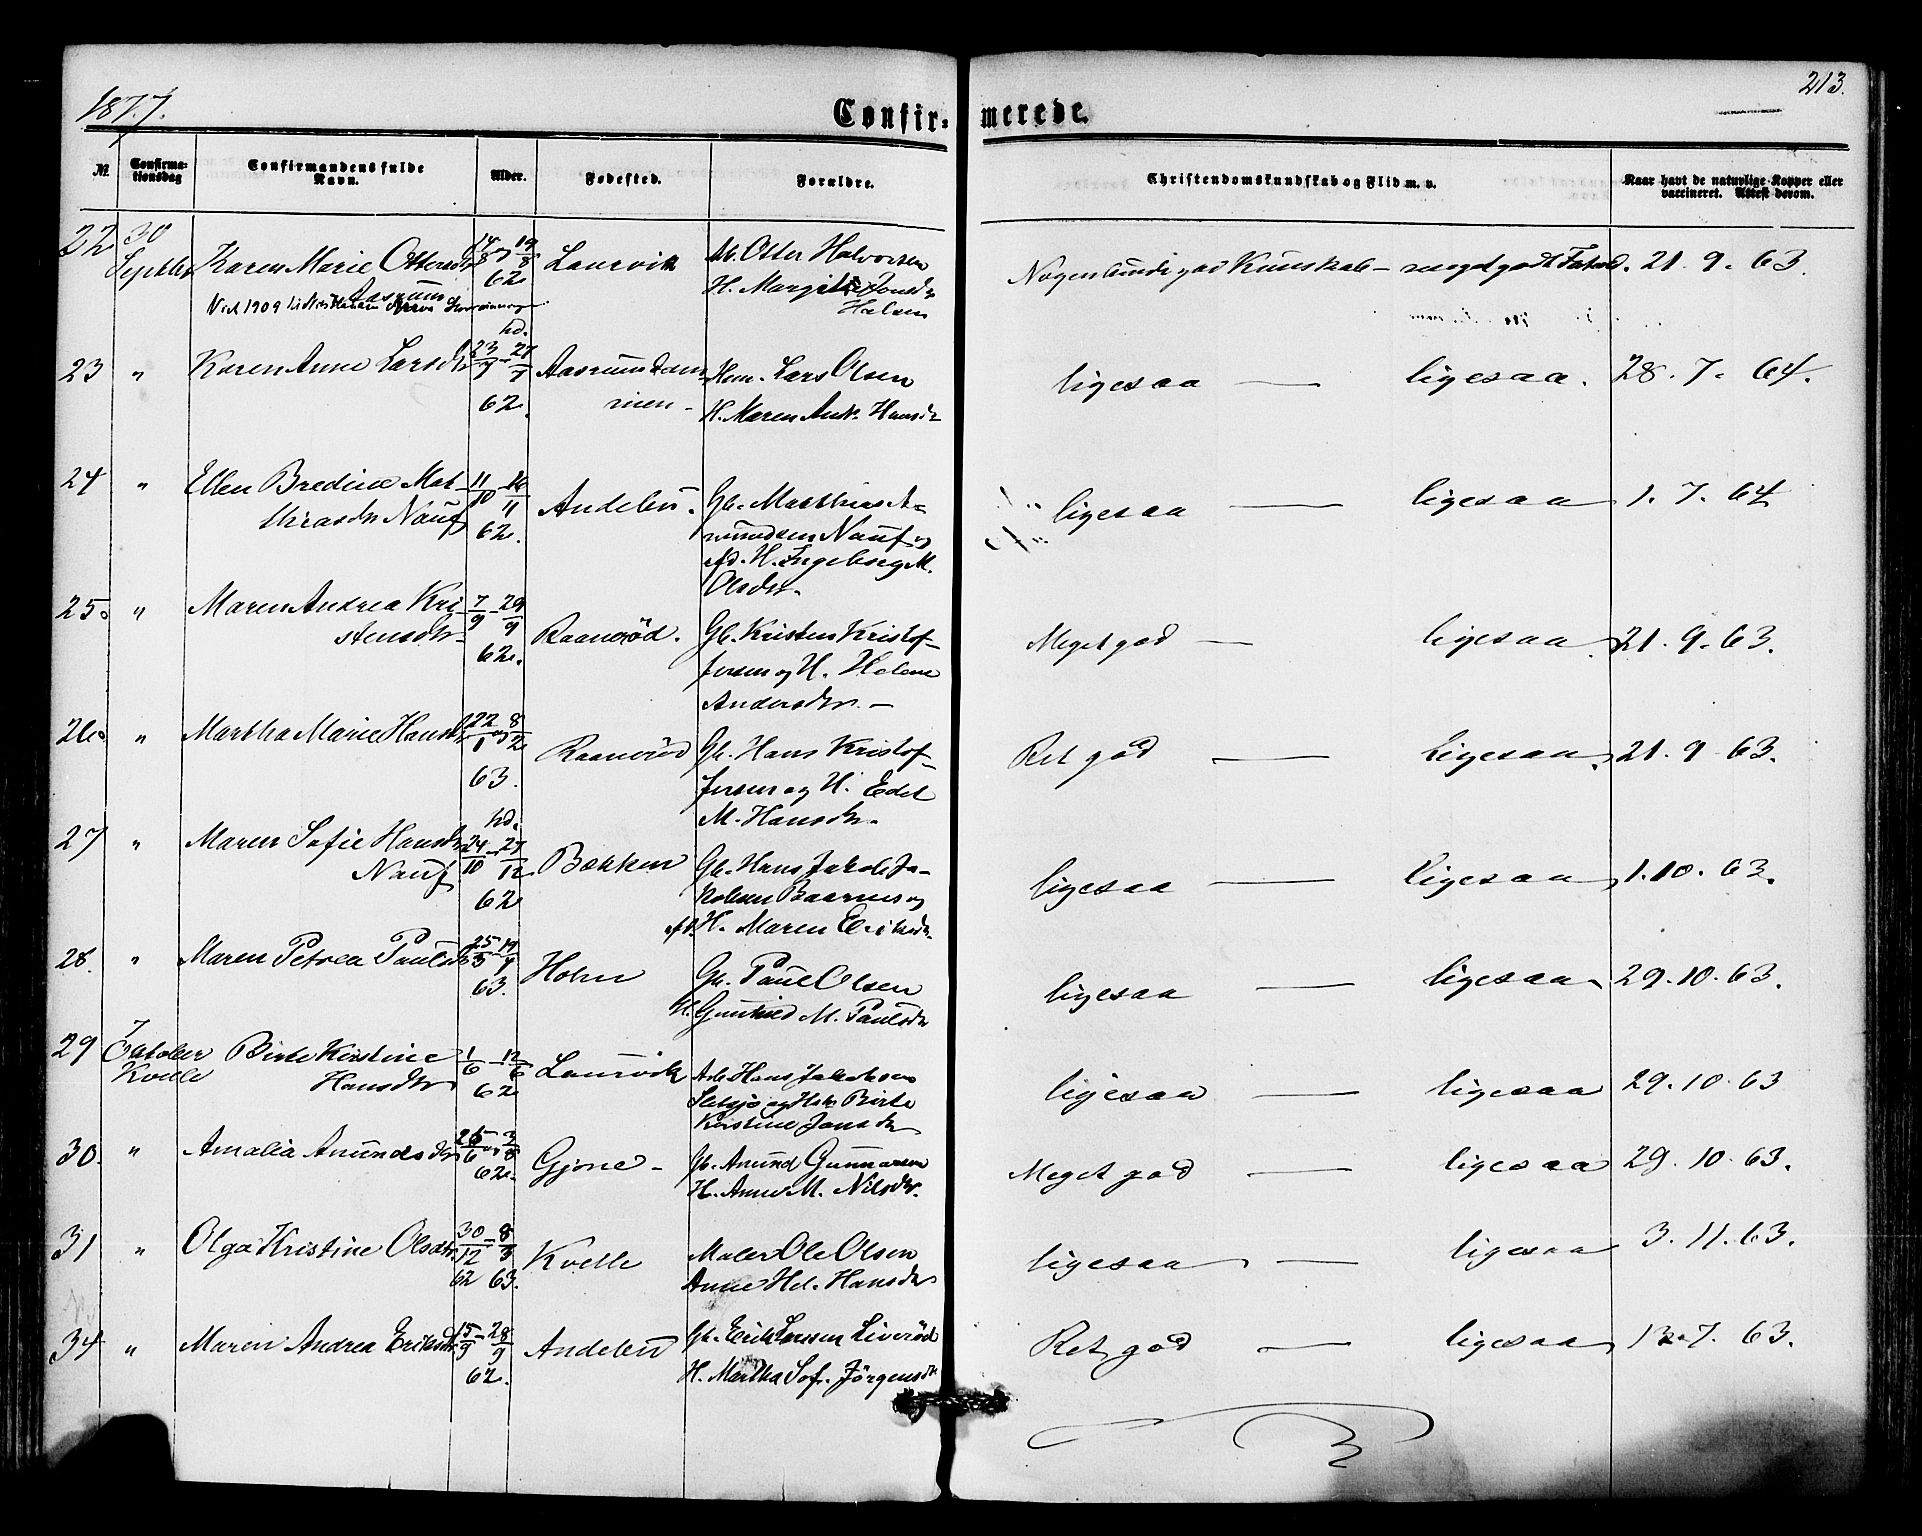 1877.
213.
Confir- merede.
Nr.
Confirma-
tionsdag
Confirmandens fulde
Navn.
Alder.
Fødested.
Forældre.
Christendomskundskab og Flid m. v.
Naar havt de naturlige Kopper eller
vaccineret. Attest derom.
22 30 Septbr Karen Marie Ottersdtr 14/8 og 19/8 62 Laurvik Otter Halvorsen
Aasrum H. Jonsdtr
Halsen
god Kundskab - meget godt Forhold. 21. 9. 63.
23 " Karen Anne Larsdtr hd. 23/7 - 27/7 62. Aasrum Lars Olsen
H. Maren Hansdtr
ligesaa — ligesaa. 28. 7. 64.
24 " Ellen Bredine Mat-
thiasdtr Nauf 11/10 - 16/11 62. Andebu. Gb. Matthias A-
mundsen Nauf og
afd. H. Ingeborg M.
Olsdtr.
ligesaa — ligesaa 1. 7. 64
25. " Maren Andrea Kri-
stensdtr. 7/9 - 29/9 62. Raanerød. Gb. Kristen Kristof-
fersen og H. Helene
Andersdtr. -
Meget god — ligesaa 21. 9. 63.
26. " Martha Marie Hansdtr 22/1 og 8/2 63. Raanerød Gb. Hans Kristof-
fersen og H. Edel
M. Hansdtr.
Ret god — ligesaa. 21. 9 63.
27 " Maren Sofie Hansdtr
Nauf hd. 24/10 - 27/12 62 Bakken Gb. Hans Jakob Ja-
kobsen og
afd. H. Maren Eriksdtr.
ligesaa — ligesaa 1. 10. 63.
28. " Maren Petrea Paulsdtr 63. Holm Gb. Paul Olsen
H. Gunhild M. Paulsdtr
ligesaa — ligesaa 29. 10. 63.
29 7 October
Kvelle Birte Kirstine
Hansdtr 1/6 - 12/6 62 Laurvik Arb. Hans Jakobsen
og Birte
Kirstine Jonsdtr
ligesaa — ligesaa 29. 10. 63
30. " Amalia Anundsdtr 62. Gjone - Gb. Anund Gunnarsen
H. Anne M. Nilsdtr.
Meget god — ligesaa 29. 10. 63.
31 " Olga Kristine Olsdtr 30/12 62 - 8/3 63. Kvelle Maler Ole Olsen
Anne Hel. Hansdtr
ligesaa — ligesaa 3. 11. 63.
34 " Maren Andrea Eriksdtr 15/9 - 28/9 62. Andebu Gb. Erik Larsen Liverød
H. Martha Sof. Jørgensdtr
Ret god — ligesaa 7. 63.